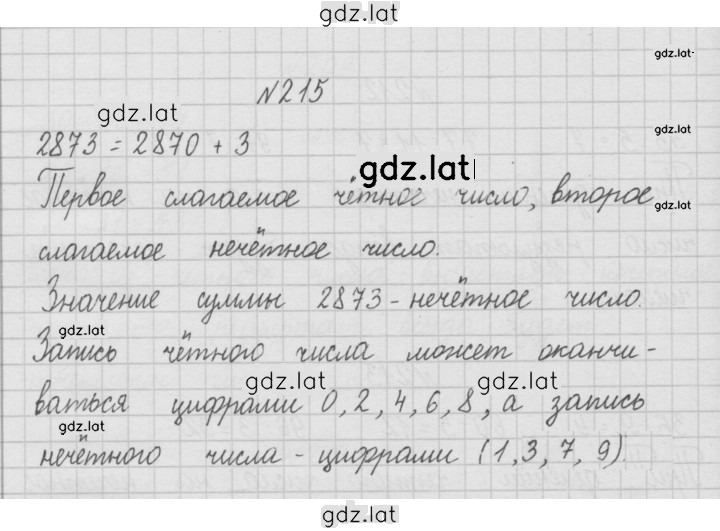 gdz.lat
gdz.lat
№215
gdz.lat
2873 = 2870 + 3
gdz.lat
Первое слагаемое чётное число, второе
gdz.lat
слагаемое нечётное число.
Значение суммы 2873 - нечётное число.
gdz.lat
Запись чётного числа может оканчи-
gdz.lat gdz.lat
ваться цифрами 0, 2, 4, 6, 8, а запись
gdz.lat
нечётного числа - цифрами (1, 3, 7, 9)
gdz.lat